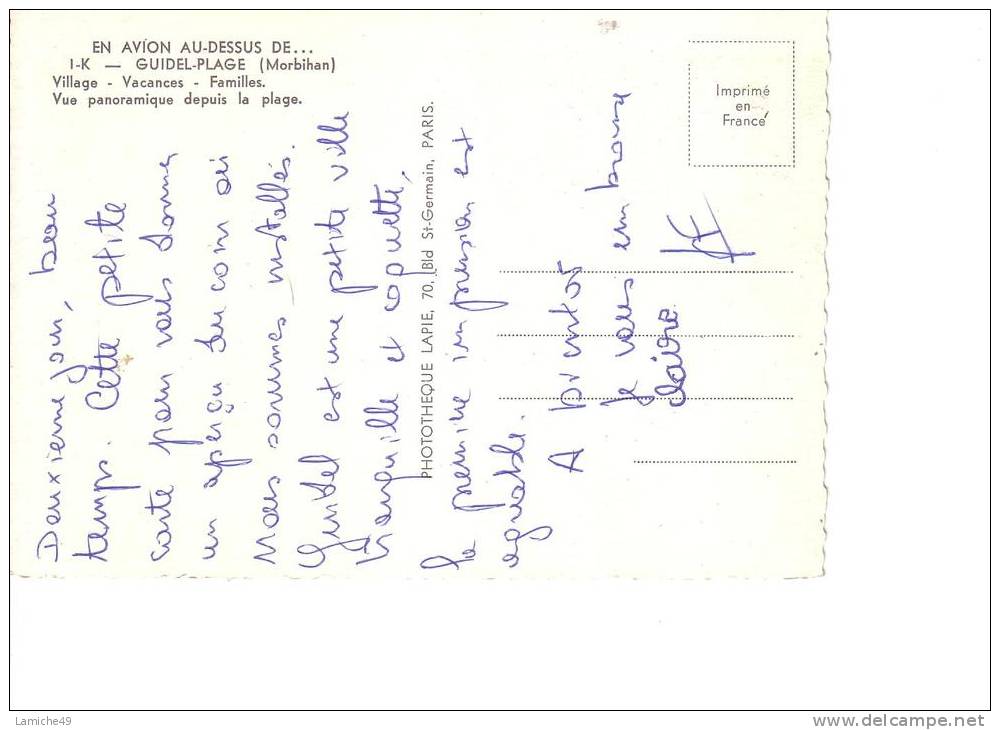 EN AVION AU-DESSUS DE...
I-K — GUIDEL-PLAGE (Morbihan)
Village - Vacances - Familles.
Vue panoramique depuis la plage.
Imprimé
en
France
PHOTOTHEQUE LAPIE, 70, Bld St-Germain, PARIS.
Deuxieme jour, beau
temps. Cette petite
carte pour vous donner
un aperçu du coin où
nous sommes installés.
Guidel est une petite ville
tranquille et coquette,
la premiere impression est
agréable.
A bientôt
je vous embrasse
Claire
Lamiche49
www.delcampe.net